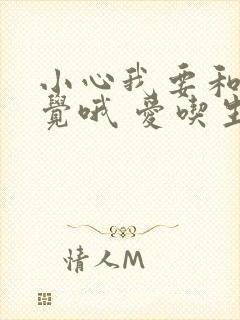 小心我要和
覺哦 愛喫生
情人M